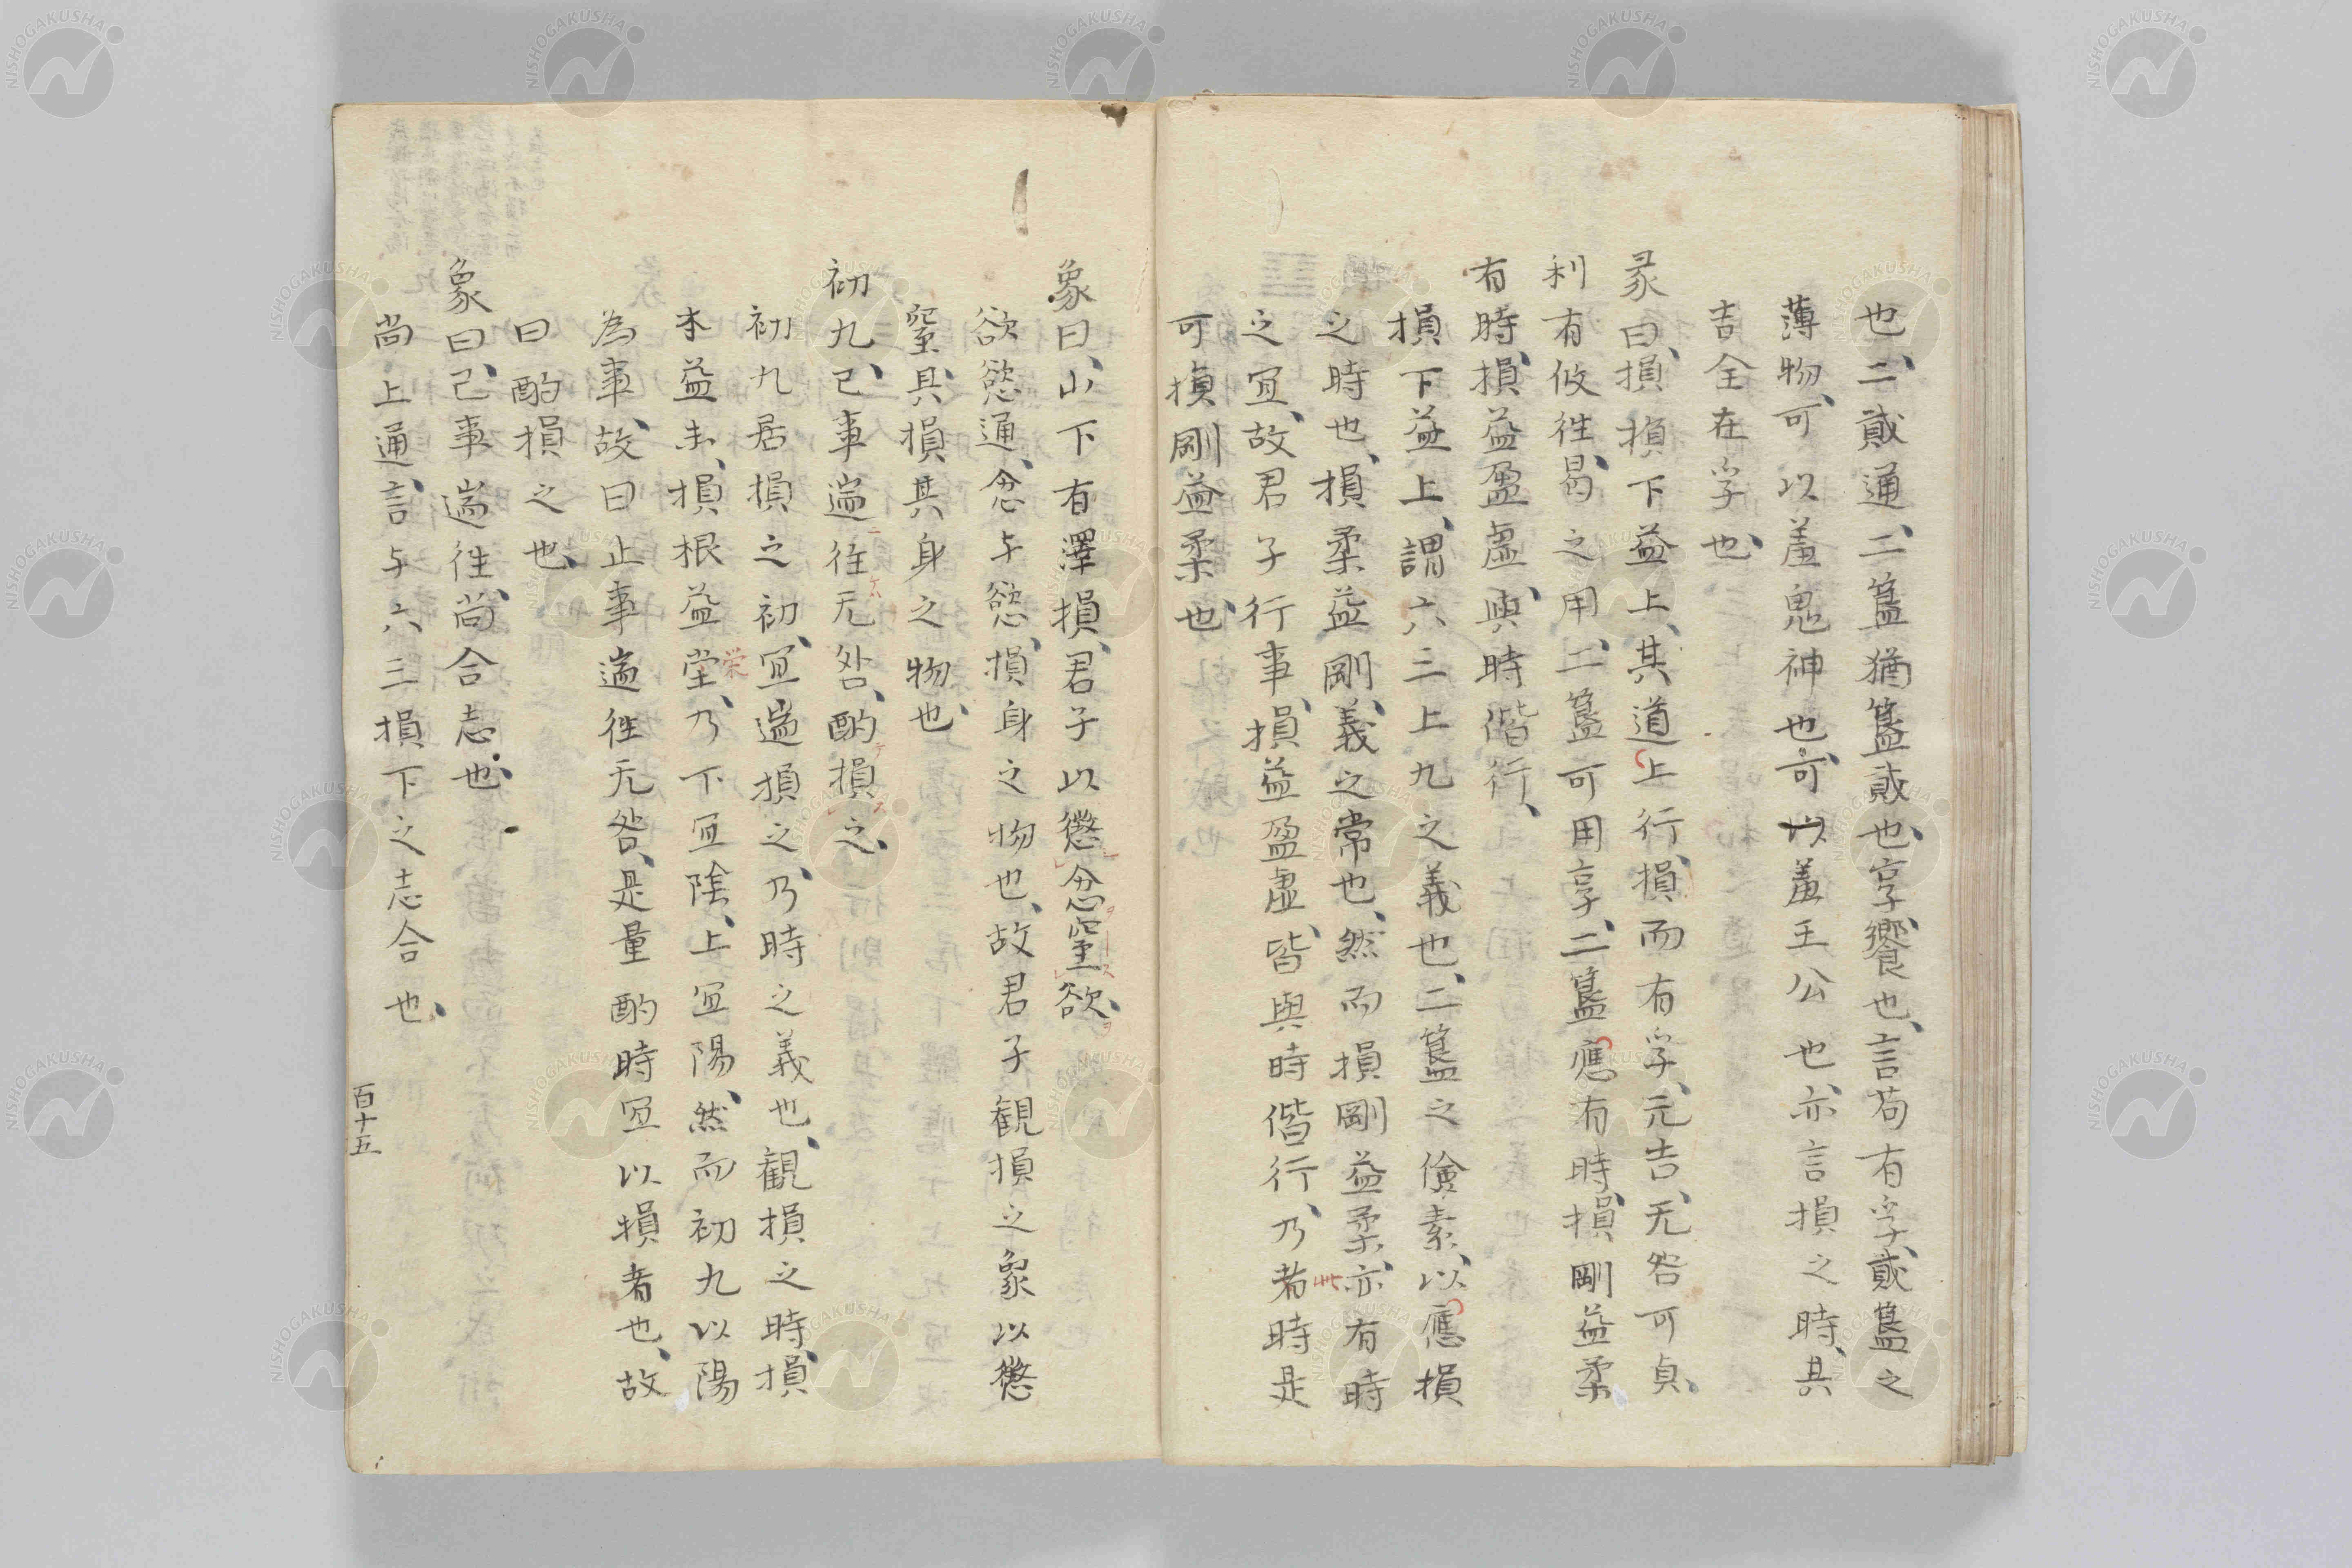 也、二、貳通、二簋猶簋貳也、享、饗也、言苟有孚、貳簋之
薄物、可以羞鬼神也、可以羞王公也、亦言損之時、其
吉全在孚也、
彖曰、損、損下益上、其道上行、損而有孚、元吉、无咎可貞、
利有攸往、曷之用、二簋可用享、二簋應有時、損剛益柔
有時、損益盈虛、與時偕行、
損下益上、謂六三上九之義也、二簋之儉素、以應損
之時也、損柔益剛、義之常也、然而損剛益柔、亦有時
之宜、故君子行事、損益盈虛、皆與時偕行、乃若時是
可損剛益柔也、
象曰、山下有澤損、君子以懲忿窒欲、
欲慾通、忿与慾、損身之物也、故君子観損之象以懲
窒、具損其身之物也、
初九、已事遄往无咎、酌損之、
初九居損之初、宜遄損之、乃時之義也、観損之時、損
末益末、損根益堂、乃下宜陰、上宜陽、然而初九以陽
為事、故曰止事遄往无咎、是量酌時宜以損者也、故
曰酌損之也、
象曰、已事遄往、尚合志也、
尚上通、言与六三損下之志合也、
百十五
栄
NISHOGAKUSHA